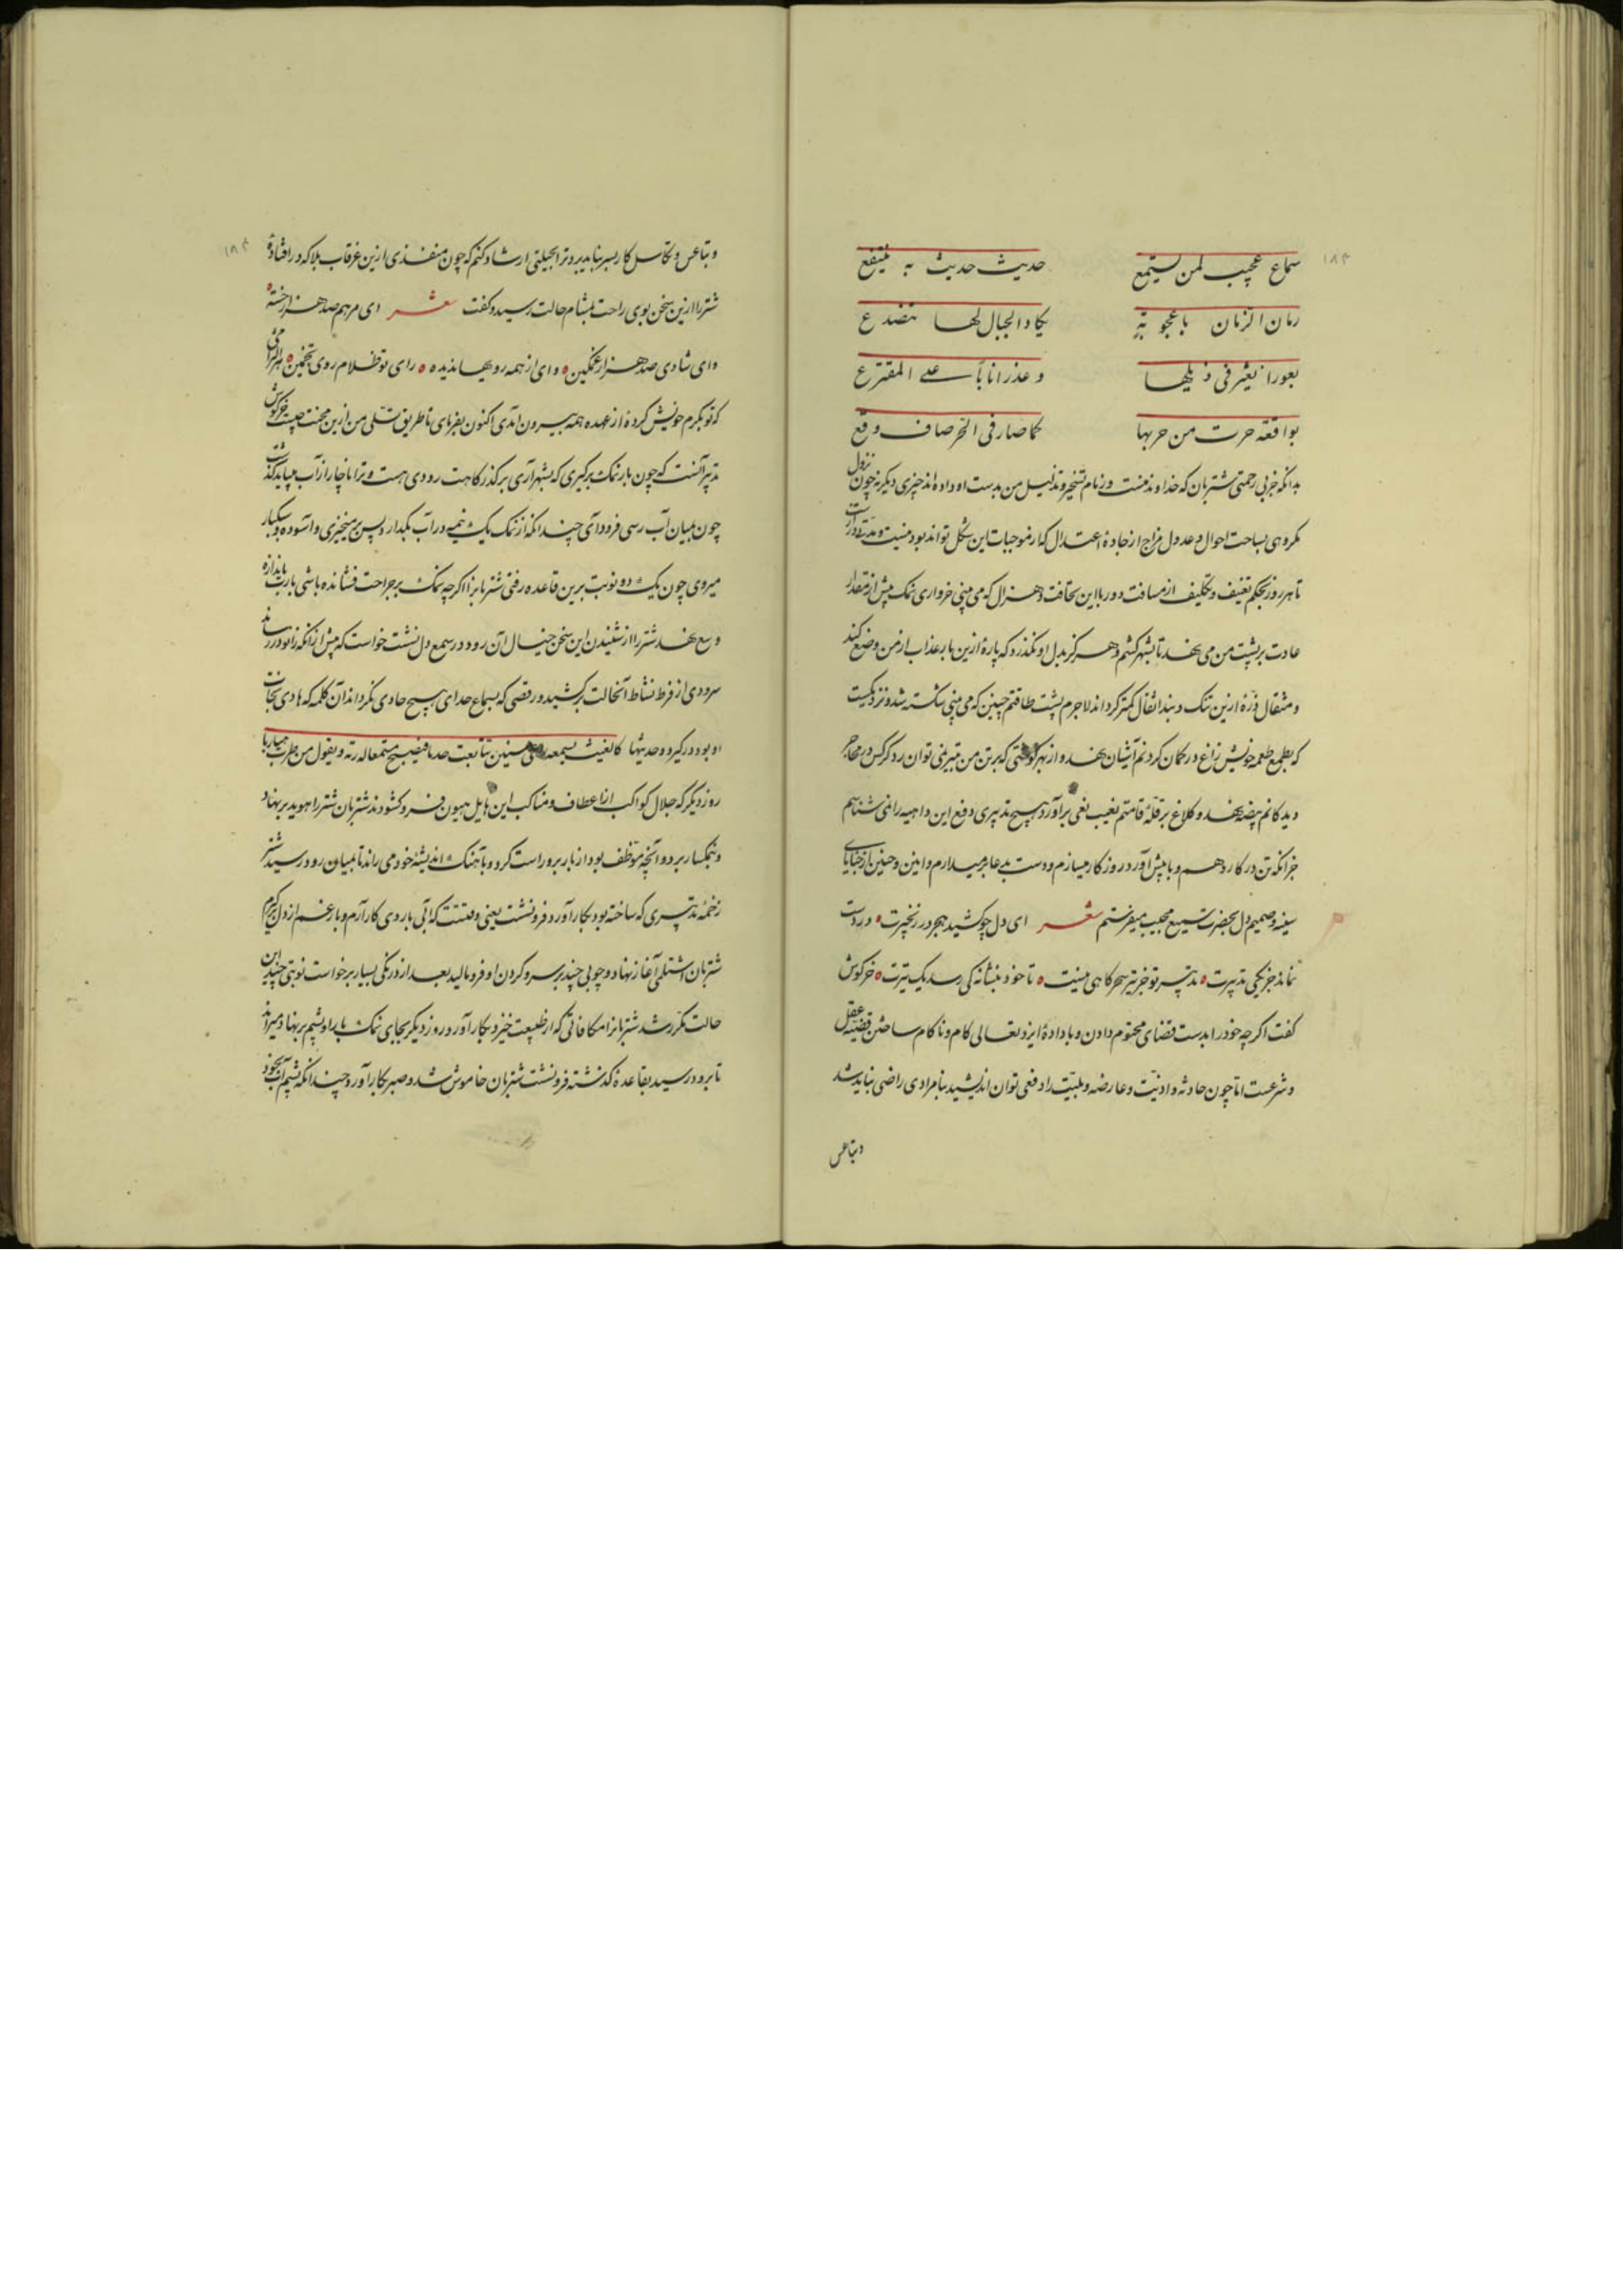 سماع عجیب لمن یستمع حدیث حدیث به ینتفع
رمان الزمان باعجوبة یکاد الجبال لها تنصدع
بواقعة حرت من حربها کما صار فی الخرصاف وقع
بدانکه چربی زحمتی شتربان که خداوند منست و زمام تسخیر و تذلیل من بدست او داده‌اند چیزی دیگر نه چون نزول
مکروهی بساحت احوال و عدول مزاج از جادهٔ اعتدال که از موجبات این شکل تواند بود نیست و مدتی دراز است
تا هر روز بحکم تعنیف و تکلیف از مسافت دور با این نحافت و هزال که می بینی خرواری نمک بیش از مقدار
عادت بر پشت من می نهد تا بشهر کشم و هرگز بدل او نگذرد که پارهٔ ازین بار عذاب از من وضع کند
و مثقال ذرهٔ ازین تنک و بند اثقال کمتر گرداند لاجرم پشت طاقتم چنین که می بینی شکسته شد و نزدیکست
که بطمع طعمه خویش زاغ در کمان گردنم آشیان نهد و از بهر که بر تن من تیر نمی توان زد کرکس در محاجر
دیدگانم بیضه نهد و کلاغ بر قلهٔ قامتم نعیب نعی برآورد هیچ تدبیری دفع این داهیه را نمی شناسم
جز آنکه تن در کار دهم و با پیش آورد روزگار میسازم و دست بدعا برمیدارم و انین و حنین از خبایای
سینه و صمیم دل بحضرت سمیع مجیب میفرستم شعر ای دل چو کشید هجر در زنجیرت در دست
نماند جز یکی تدبیرت تدبیر تو جز تیر سحرگاهی نیست تا خود بنشانه کی رسد یک تیرت خرگوش
گفت اگرچه خود را بدست قضای محتوم دادن و با دادهٔ ایزد تعالی کام و ناکام ساختن قضیه عقل
و شرعست اما چون حادثه و اذیت و عارضه و بلیت را دفعی توان اندیشید بنامرادی راضی نباید شد
و بتاعس
و بتاعس و تکاسل کار بسر نیاید برد ترا بحیلتی ارشاد کنم که چون منفذی ازین غرقاب بلا که در افتادهٔ
شتر را ازین سخن بوی راحت بمشام حالت رسید و گفت شعر ای مرهم صد هزار خسته
وای شادی صد هزار غمگین وای از همه رویها ندیده رای تو ظلام روی تخمین
که تو بکرم خویش کردهٔ از عهده همه بیرون آمدی اکنون بفرمای تا طریق تسلی من ازین محنت چیست خرگوش
تدبیر آنست که چون بار نمک برگیری که بشهر آری بر گذرگاهت رودی هست و ترا ناچار از آب میباید گذشت
چون میان آب رسی فرود آی چندانکه از نمک یک نیمه در آب بگدازد پس برمیخیزی و آسوده و سبکبار
میروی چون یک دو نوبت برین قاعده رفتی شتربانرا اگرچه نمک بر جراحت فشانده باشی بارت باندازه
وسع نهد شتر را از شنیدن این سخن خیال آن رود در سمع دل نشست خواست که پیش از آنکه زانو در رساند
سرودی از فرط نشاط آنحالت برکشید و رقصی که بسماع حدای هیچ حادی نکرد اند آن کلمه که هادی نجات
او بود در گیرد و حدیثها کالغیث یسمعه سنین تتابعت جدبا فیصبح مستمعا لدرته و یقول من طرب هیا ربا
روز دیگر که جلال کواکب از اعطاف و مناکب این هایل هیون فرو گشودند شتربان شتر را هوید بر نهاد
و نمکسار برد و آنچه موظف بود از بار برو راست کرد و بآهنگ اندیشهٔ خود می راند تا بمیان رود رسید شتر
زخمهٔ تدبیری که ساخته بود بکار آورد و فرو نشست یعنی وقتست که آبی با روی کار آرم و بار غم از دل برگیرم
شتربان اشتلمی آغاز نهاد و چوبی چند بر سر و گردن او فرو مالید بعد از درنگی بسیار برخاست نوبتی چند این
حالت مکرر شد شتربانرا مکافاتی که از طبیعت خیزد بکار آورد روز دیگر بجای نمک بار او پشم بر نهاد و میراند
تا برود رسید بقاعدهٔ گذشته فرو نشست شتربان خاموش شد و صبر بکار آورد چندانکه پشم آب بخود